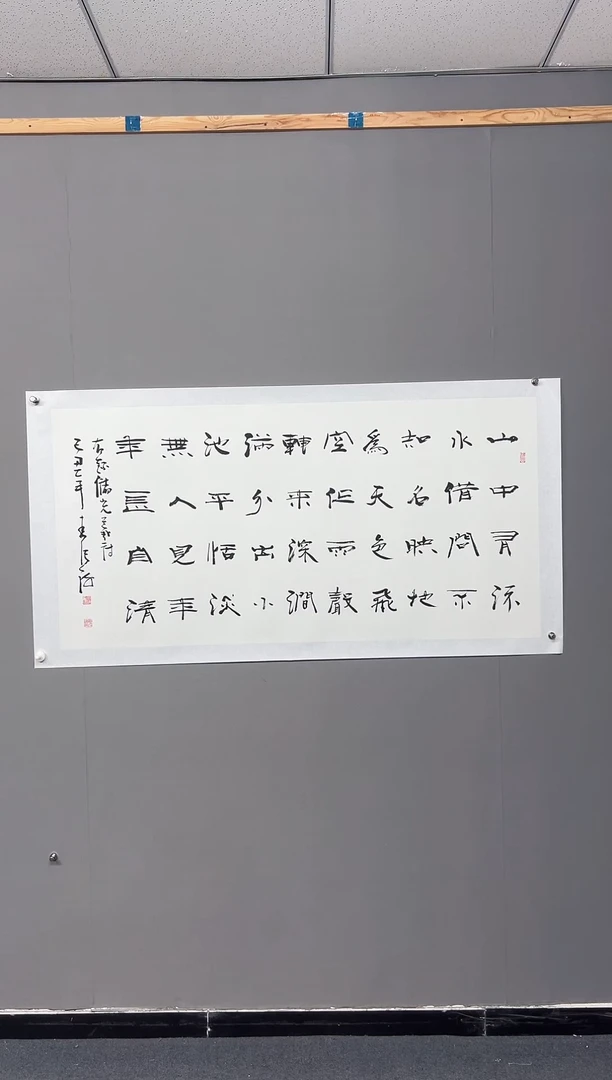 山中有流
水借問不
知名映地
為天色飛
空作雨聲
轉來深澗
滿分出小
池平恬淡
無人見年
年長自清
右錄儲光羲詩